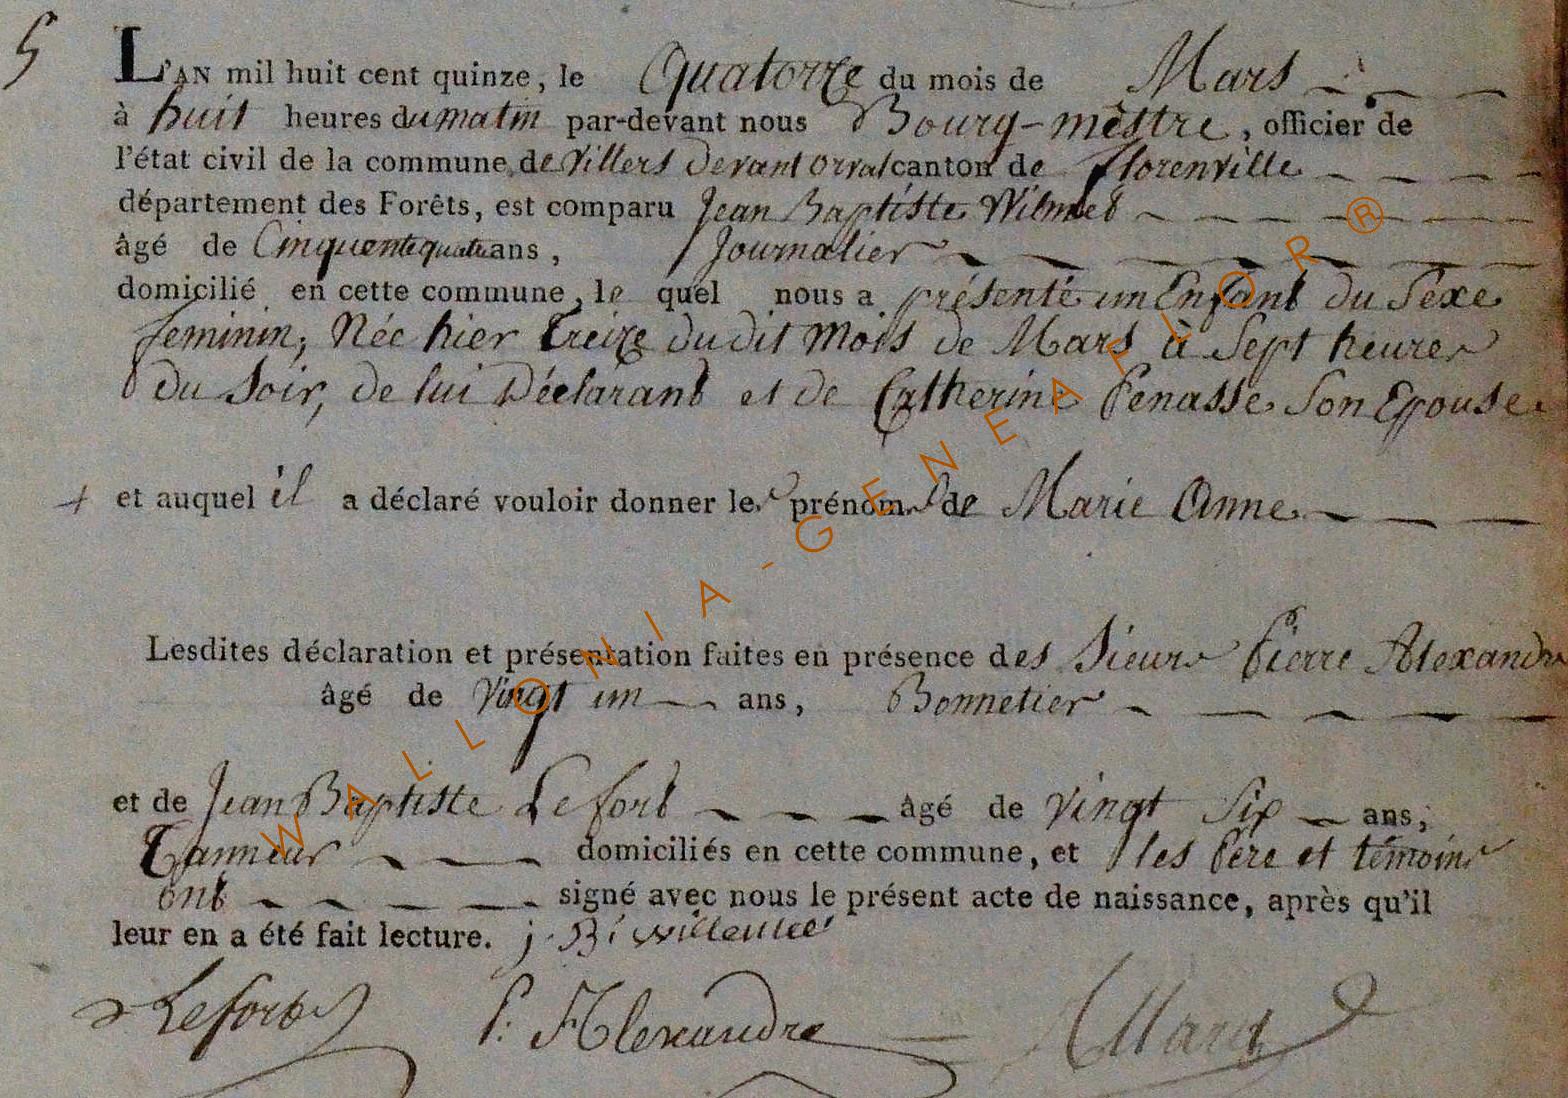 5
L'AN mil huit cent quinze, le Quatorze du mois de Mars
à huit heures du matin par-devant nous Bourg-mêstre, officier de
l'état civil de la commune de Villers devant orval canton de florenville
département des Forêts, est comparu Jean Baptiste Wilmet
âgé de Cinquante quatre ans, Journalier
domicilié en cette commune, le quel nous a présenté un Enfant du Sexe
feminin, Née hier Treize du dit Mois de Mars à Sept heures
du Soir, de lui Déclarant et de Catherine Penasse Son Epouse
+ et auquel il a déclaré vouloir donner les prénoms de Marie Anne
Lesdites déclaration et présentation faites en présence des Sieurs Pierre Alexandre
âgé de Vingt un ans, Bonnetier
et de Jean Baptiste Lefort âgé de Vingt Six ans,
Tanneur domiciliés en cette commune, et les Père et témoins
ont signé avec nous le présent acte de naissance, après qu'il
leur en a été fait lecture. j. B
Lefort P. Alexandre
WALLONIA-GENEAFLOR®